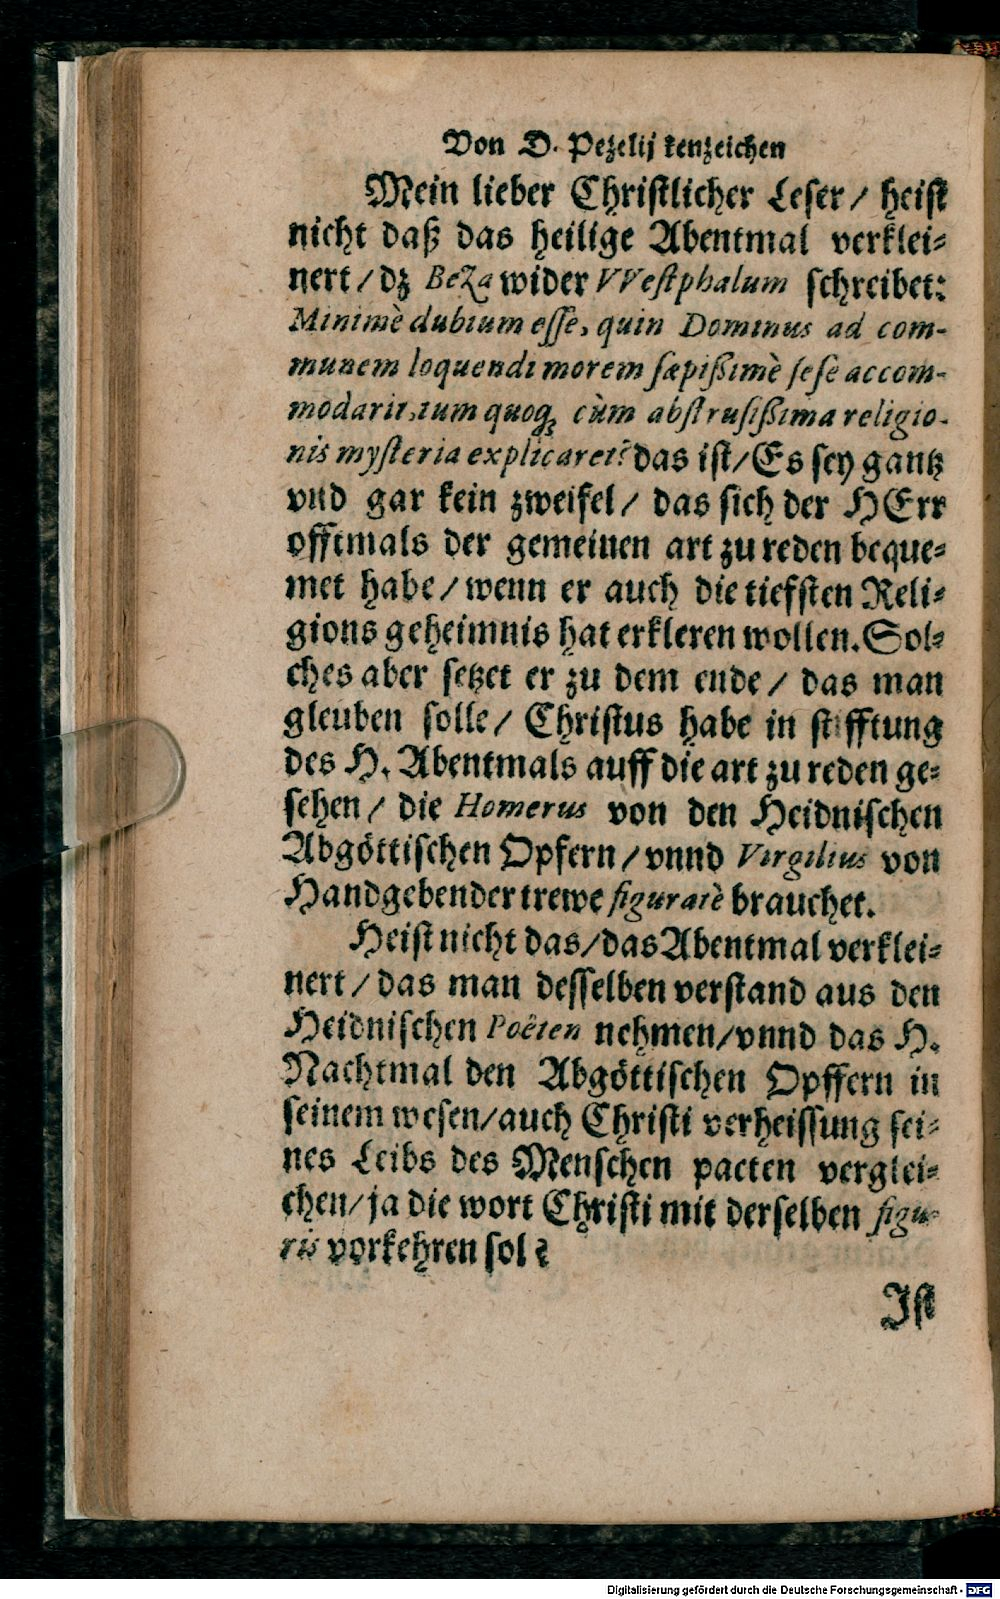 Von D. Pezelij kenzeichen
Mein lieber Christlicher Leser/ heist
nicht daß das heilige Abentmal verklei⸗
nert/ dz BeZa wider VVestphalum schreibet:
Minimè dubium esse, quin Dominus ad com-
munem loquendi morem sæpißimè sese accom-
modarit, tum quoq; cùm abstrusißima religio-
nis mysteria explicaret? das ist/ Es sey gantz
vnd gar kein zweifel/ das sich der HErr
offtmals der gemeinen art zu reden beque⸗
met habe/ wenn er auch die tieffsten Reli⸗
gions geheimnis hat erkleren wollen. Sol⸗
ches aber setzet er zu dem ende/ das man
gleuben solle/ Christus habe in stifftung
des H. Abentmals auff die art zu reden ge⸗
sehen/ die Homerus von den Heidnischen
Abgöttischen Opfern/ vnnd Virgilius von
Handgebender trewe figuratè brauchet.
Heist nicht das/ das Abentmal verklei⸗
nert/ das man desselben verstand aus den
Heidnischen Poêten nehmen/ vnnd das H.
Nachtmal den Abgöttischen Opffern in
seinem wesen/ auch Christi verheissung sei⸗
nes Leibs des Menschen pacten verglei⸗
chen/ ja die wort Christi mit derselben figu-
ris vorkehren sol?
Ist
Digitalisierung gefördert durch die Deutsche Forschungsgemeinschaft - DFG